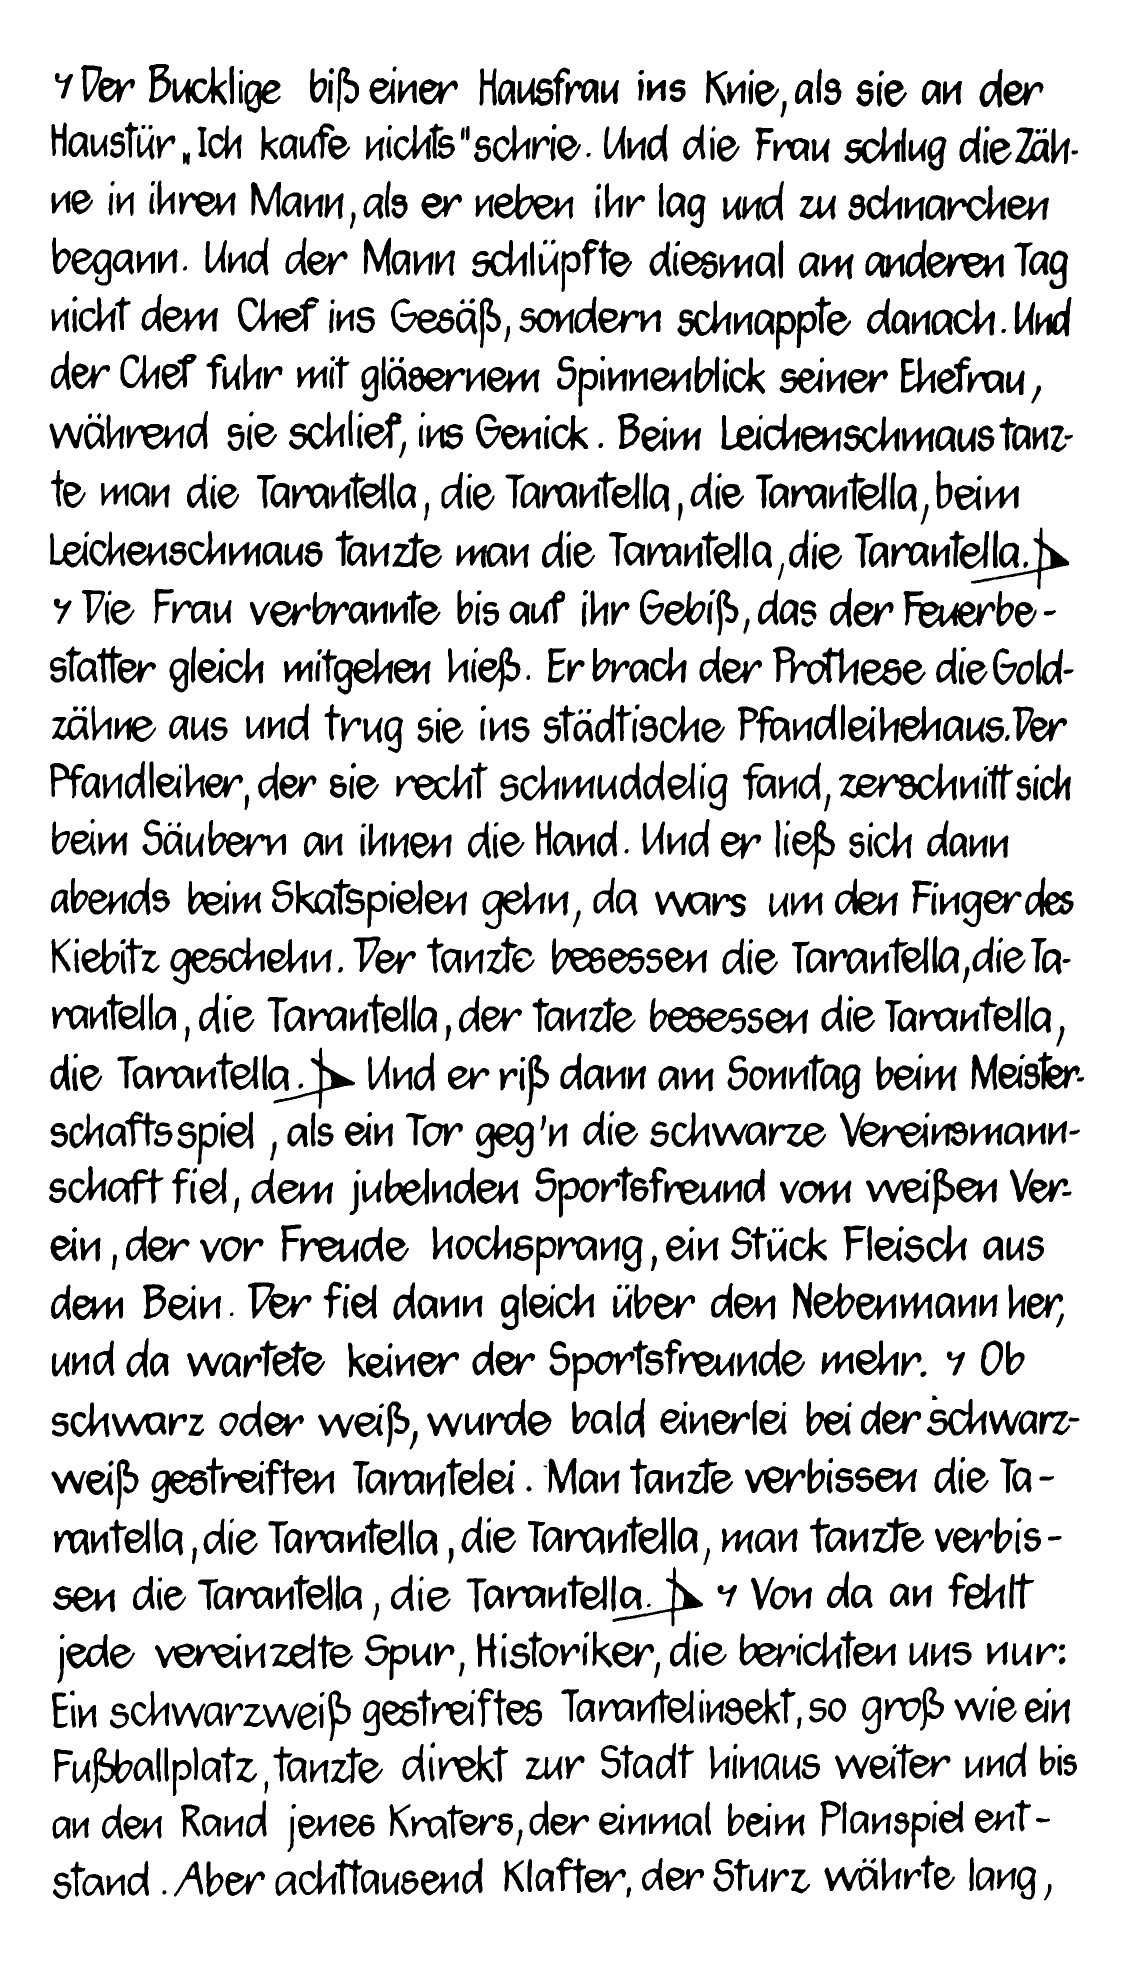 Der Bucklige biß einer Hausfrau ins Knie, als sie an der
Haustür „Ich kaufe nichts" schrie. Und die Frau schlug die Zäh-
ne in ihren Mann, als er neben ihr lag und zu schnarchen
begann. Und der Mann schlüpfte diesmal am anderen Tag
nicht dem Chef ins Gesäß, sondern schnappte danach. Und
der Chef fuhr mit gläsernem Spinnenblick seiner Ehefrau,
während sie schlief, ins Genick. Beim Leichenschmaus tanz-
te man die Tarantella, die Tarantella, die Tarantella, beim
Leichenschmaus tanzte man die Tarantella, die Tarantella.
Die Frau verbrannte bis auf ihr Gebiß, das der Feuerbe-
statter gleich mitgehen hieß. Er brach der Prothese die Gold-
zähne aus und trug sie ins städtische Pfandleihehaus. Der
Pfandleiher, der sie recht schmuddelig fand, zerschnitt sich
beim Säubern an ihnen die Hand. Und er ließ sich dann
abends beim Skatspielen gehn, da wars um den Finger des
Kiebitz geschehn. Der tanzte besessen die Tarantella, die Ta-
rantella, die Tarantella, der tanzte besessen die Tarantella,
die Tarantella. Und er riß dann am Sonntag beim Meister-
schaftsspiel, als ein Tor geg'n die schwarze Vereinsmann-
schaft fiel, dem jubelnden Sportsfreund vom weißen Ver-
ein, der vor Freude hochsprang, ein Stück Fleisch aus
dem Bein. Der fiel dann gleich über den Nebenmann her,
und da wartete keiner der Sportsfreunde mehr. Ob
schwarz oder weiß, wurde bald einerlei bei der schwarz-
weiß gestreiften Tarantelei. Man tanzte verbissen die Ta-
rantella, die Tarantella, die Tarantella, man tanzte verbis-
sen die Tarantella, die Tarantella. Von da an fehlt
jede vereinzelte Spur, Historiker, die berichten uns nur:
Ein schwarzweiß gestreiftes Tarantelinsekt, so groß wie ein
Fußballplatz, tanzte direkt zur Stadt hinaus weiter und bis
an den Rand jenes Kraters, der einmal beim Planspiel ent-
stand. Aber achttausend Klafter, der Sturz währte lang,